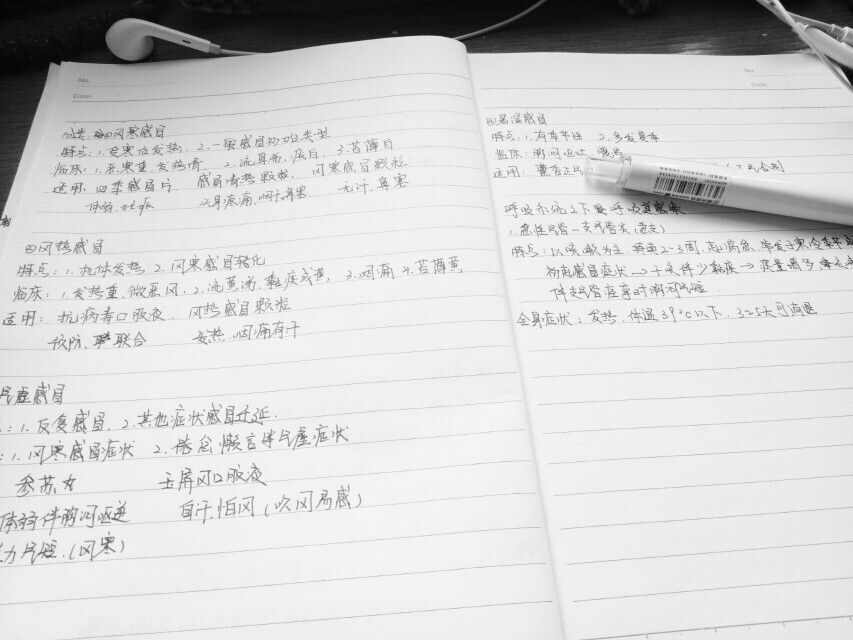 No.
Date.
分类:①风寒感冒
特点:1.受寒后发热,2.一般感冒初始类型
临床:1.恶寒重,发热轻,2.流鼻涕,痰白,3.苔薄白
适用:四季感冒片,感冒清热颗粒,风寒感冒颗粒
体弱,
头身疼痛,咽干鼻塞
无汗,鼻塞
②风热感冒
特点:1.机体发热,2.风寒感冒转化
临床:1.发热重,微恶风,2.流黄涕,黏痰或黄,3.咽痛,4.苔薄黄
适用:抗病毒口服液,风热感冒颗粒
预防,联合 发热,咽痛有汗
气虚感冒
:1.反复感冒,2.其他症状感冒迁延
:1.风寒感冒症状 2.倦怠懒言等气虚症状
参苏 玉屏风口服液
体弱伴胸闷呕逆 自汗,怕风(吹风易感)
力气短,(风寒)
No.
Date
④暑湿感冒
特点:1.有季节性 2.多发夏季
临床:胸闷呕吐,
适用:藿香正气
呼吸系统上下呼吸道感染
1.急性气管—支气管炎(急支)
特点:以咳嗽为主,持续2-3周,起病急,
初有感冒症状→干咳伴少黏痰→痰量增多,
伴支气管痉挛时胸闷气短
全身症状:发热,体温39℃以下,3至5天可消退